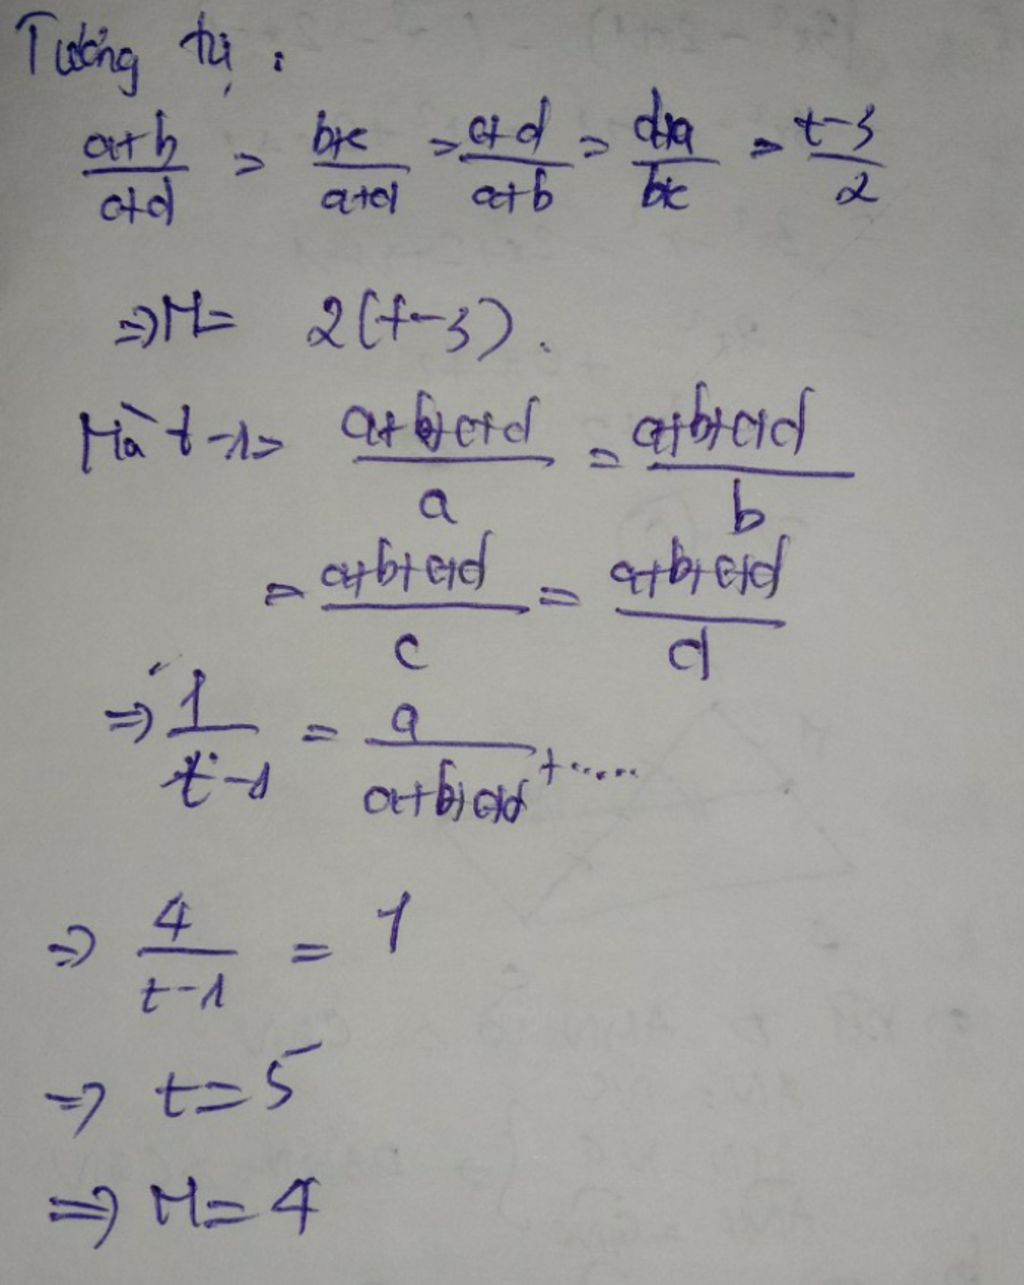 Tương tự :
a+b/c+d = b+c/a+d = c+d/a+b = d+a/b+c = t-3/2
=> M = 2(t-3).
Mà t-1 = a+b+c+d/a = a+b+c+d/b
= a+b+c+d/c = a+b+c+d/d
=> 1/t-1 = a/a+b+c+d + .....
=> 4/t-1 = 1
=> t = 5
=> M = 4